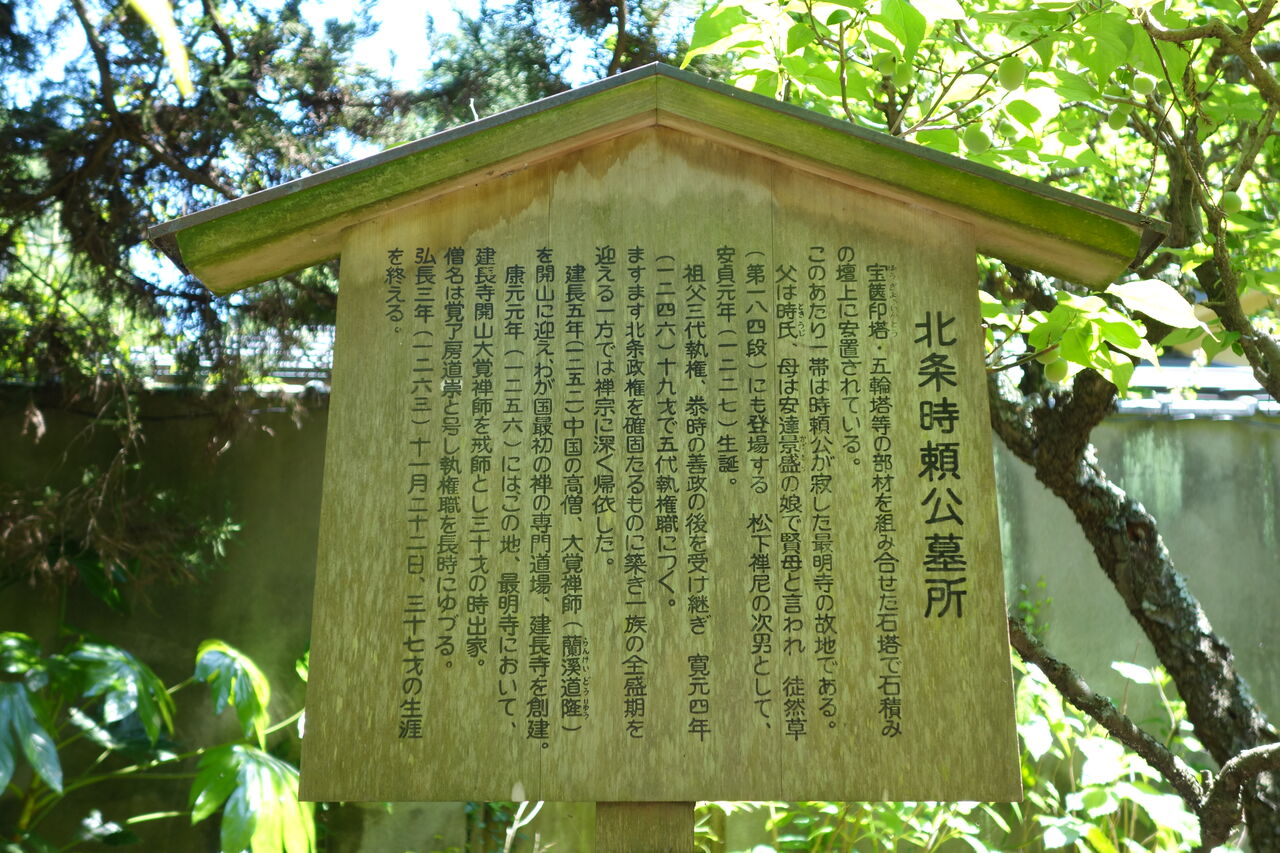 北条時頼公墓所
宝篋印塔、五輪塔等の部材を組み合せた石塔で石積み
の壇上に安置されている。
このあたり一帯は時頼公が寂した最明寺の故地である。
父は時氏、母は安達景盛の娘で賢母と言われ 徒然草
(第一八四段)にも登場する 松下禅尼の次男として、
安貞元年(一二二七)生誕。
祖父三代執権、泰時の善政の後を受け継ぎ 寛元四年
(一二四六)十九才で五代執権職につく。
ますます北条政権を確固たるものに築き一族の全盛期を
迎える一方では禅宗に深く帰依した。
建長五年(一二五二)中国の高僧、大覚禅師(蘭溪道隆)
を開山に迎えわが国最初の禅の専門道場、建長寺を創建。
康元元年(一二五六)にはこの地、最明寺において、
建長寺開山大覚禅師を戒師とし三十才の時出家。
僧名は覚了房道崇と号し執権職を長時にゆづる。
弘長三年(一二六三)十一月二十二日、三十七才の生涯
を終える。